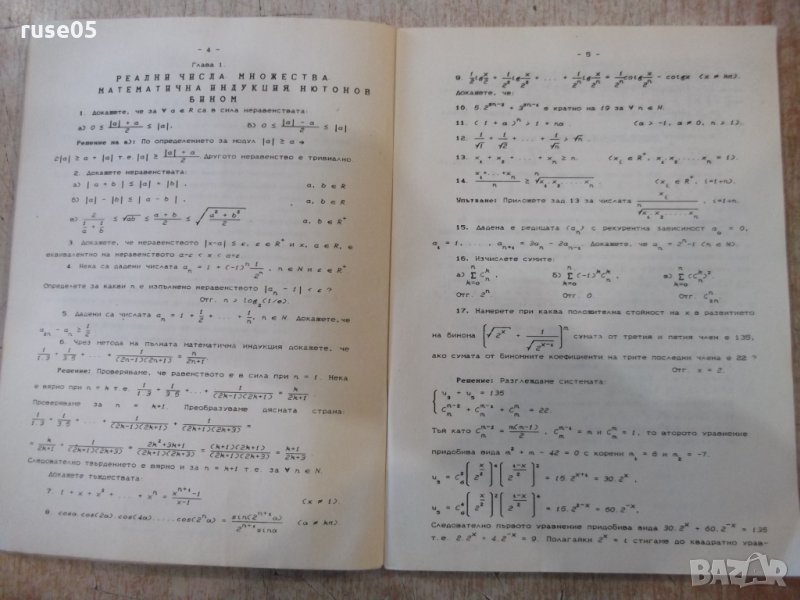 ruse05
- 4 -
Глава 1.
РЕАЛНИ ЧИСЛА. МНОЖЕСТВА.
МАТЕМАТИЧНА ИНДУКЦИЯ. НЮТОНОВ
БИНОМ
1. Докажете, че за ∀ a ∈ R са в сила неравенствата:
а) 0 ≤ (|a| + a)/2 ≤ |a|. б) 0 ≤ (|a| - a)/2 ≤ |a|
Решение на а): По определението за модул |a| ≥ a →
2|a| ≥ a + |a| т.е. |a| ≥ (|a| + a)/2. Другото неравенство е тривиално.
2. Докажете неравенствата:
а) |a + b| ≤ |a| + |b|. a, b ∈ R
б) |a| - |b| ≤ |a - b|. a, b ∈ R
в) 2/(1/a + 1/b) ≤ √ab ≤ (a + b)/2 ≤ √((a² + b²)/2) a, b ∈ R⁺
3. Докажете, че неравенството |x-a| ≤ ε, ε ∈ R⁺ и x, a ∈ R, е
еквивалентно на неравенството a-ε < x < a+ε
4. Нека са дадени числата aₙ = 1 + (-1)ⁿ 1/2ⁿ, n ∈ N и ε ∈ R⁺
Определете за какви n е изпълнено неравенството |aₙ - 1| < ε ?
Отг. n > log₂(1/ε).
5. Дадени са числата aₙ = 1 + 1/2 + . . . + 1/n, n ∈ N. Докажете, че
a₂ₙ - aₙ ≥ 1/2
6. Чрез метода на пълната математична индукция докажете, че
1/1.3 + 1/3.5 + . . . + 1/((2n-1)(2n+1)) = n/(2n+1)
Решение: Проверяваме, че равенството е в сила при n = 1. Нека
е вярно при n = k т.е. 1/1.3 + 1/3.5 + . . . + 1/((2k-1)(2k+1)) = k/(2k+1)
Проверяваме за n = k+1. Преобразуваме дясната страна:
1/1.3 + 1/3.5 + . . . + 1/((2k-1)(2k+1)) + 1/((2k+1)(2k+3)) =
= k/(2k+1) + 1/((2k+1)(2k+3)) = (2k²+3k+1)/((2k+1)(2k+3)) = (k+1)(2k+1)/((2k+1)(2k+3)) = (k+1)/(2k+3)
Следователно твърдението е вярно и за n = k+1 т.е. за ∀ n ∈ N.
Докажете тъждествата:
7. 1 + x + x² + . . . + xⁿ = (xⁿ⁺¹-1)/(x-1) (x ≠ 1).
8. cosα.cos(2α).cos(4α). . . .cos(2ⁿα) = sin(2ⁿ⁺¹α)/(2ⁿ⁺¹sinα) (α ≠ kπ).
- 5 -
Докажете, че:
10. е кратно на 19 за ∀ n ∈ N.
11. (1 + a)ⁿ > 1 + na. (a > -1, a ≠ 0, n > 1).
12. 1/√1 + 1/√2 + . . . + 1/√n > √n.
13. x₁ + x₂ + . . . + xₙ ≥ n. (xᵢ ∈ R⁺, x₁ x₂. . .xₙ = 1).
14. (x₁+. . .+xₙ)/n ≥ ⁿ√(x₁ x₂. . .xₙ) (xᵢ ∈ R⁺, i=1÷n).
Упътване: Приложете зад. 13 за числата xᵢ/ⁿ√(x₁ x₂. . .xₙ), i=1÷n.
15. Дадена е редицата (aₙ) с рекурентна зависимост a₀ = 0,
a₁ = 1, . . . , aₙ₊₁ = 3aₙ - 2aₙ₋₁. Докажете, че aₙ = 2ⁿ-1 (n ∈ N).
16. Изчислете сумите:
Отг. 2ⁿ. Отг. 0. Отг.
17. Намерете при каква положителна стойност на x в развитието
на бинома сумата от третия и петия член е 135,
ако сумата от биномните коефициенти на трите последни члена е 22 ?
Отг. x = 2.
Решение: Разглеждаме системата:
u₃ + u₅ = 135
Тъй като , то второто уравнение
придобива вида m² + m - 42 = 0 с корени m₁ = 6 и m₂ = -7.
Следователно първото уравнение придобива вида 30.2ˣ + 60.2⁻ˣ = 135
т.е. 2.2ˣ + 4.2⁻ˣ = 9. Полагайки 2ˣ = t стигаме до квадратно урав-
BAZAR